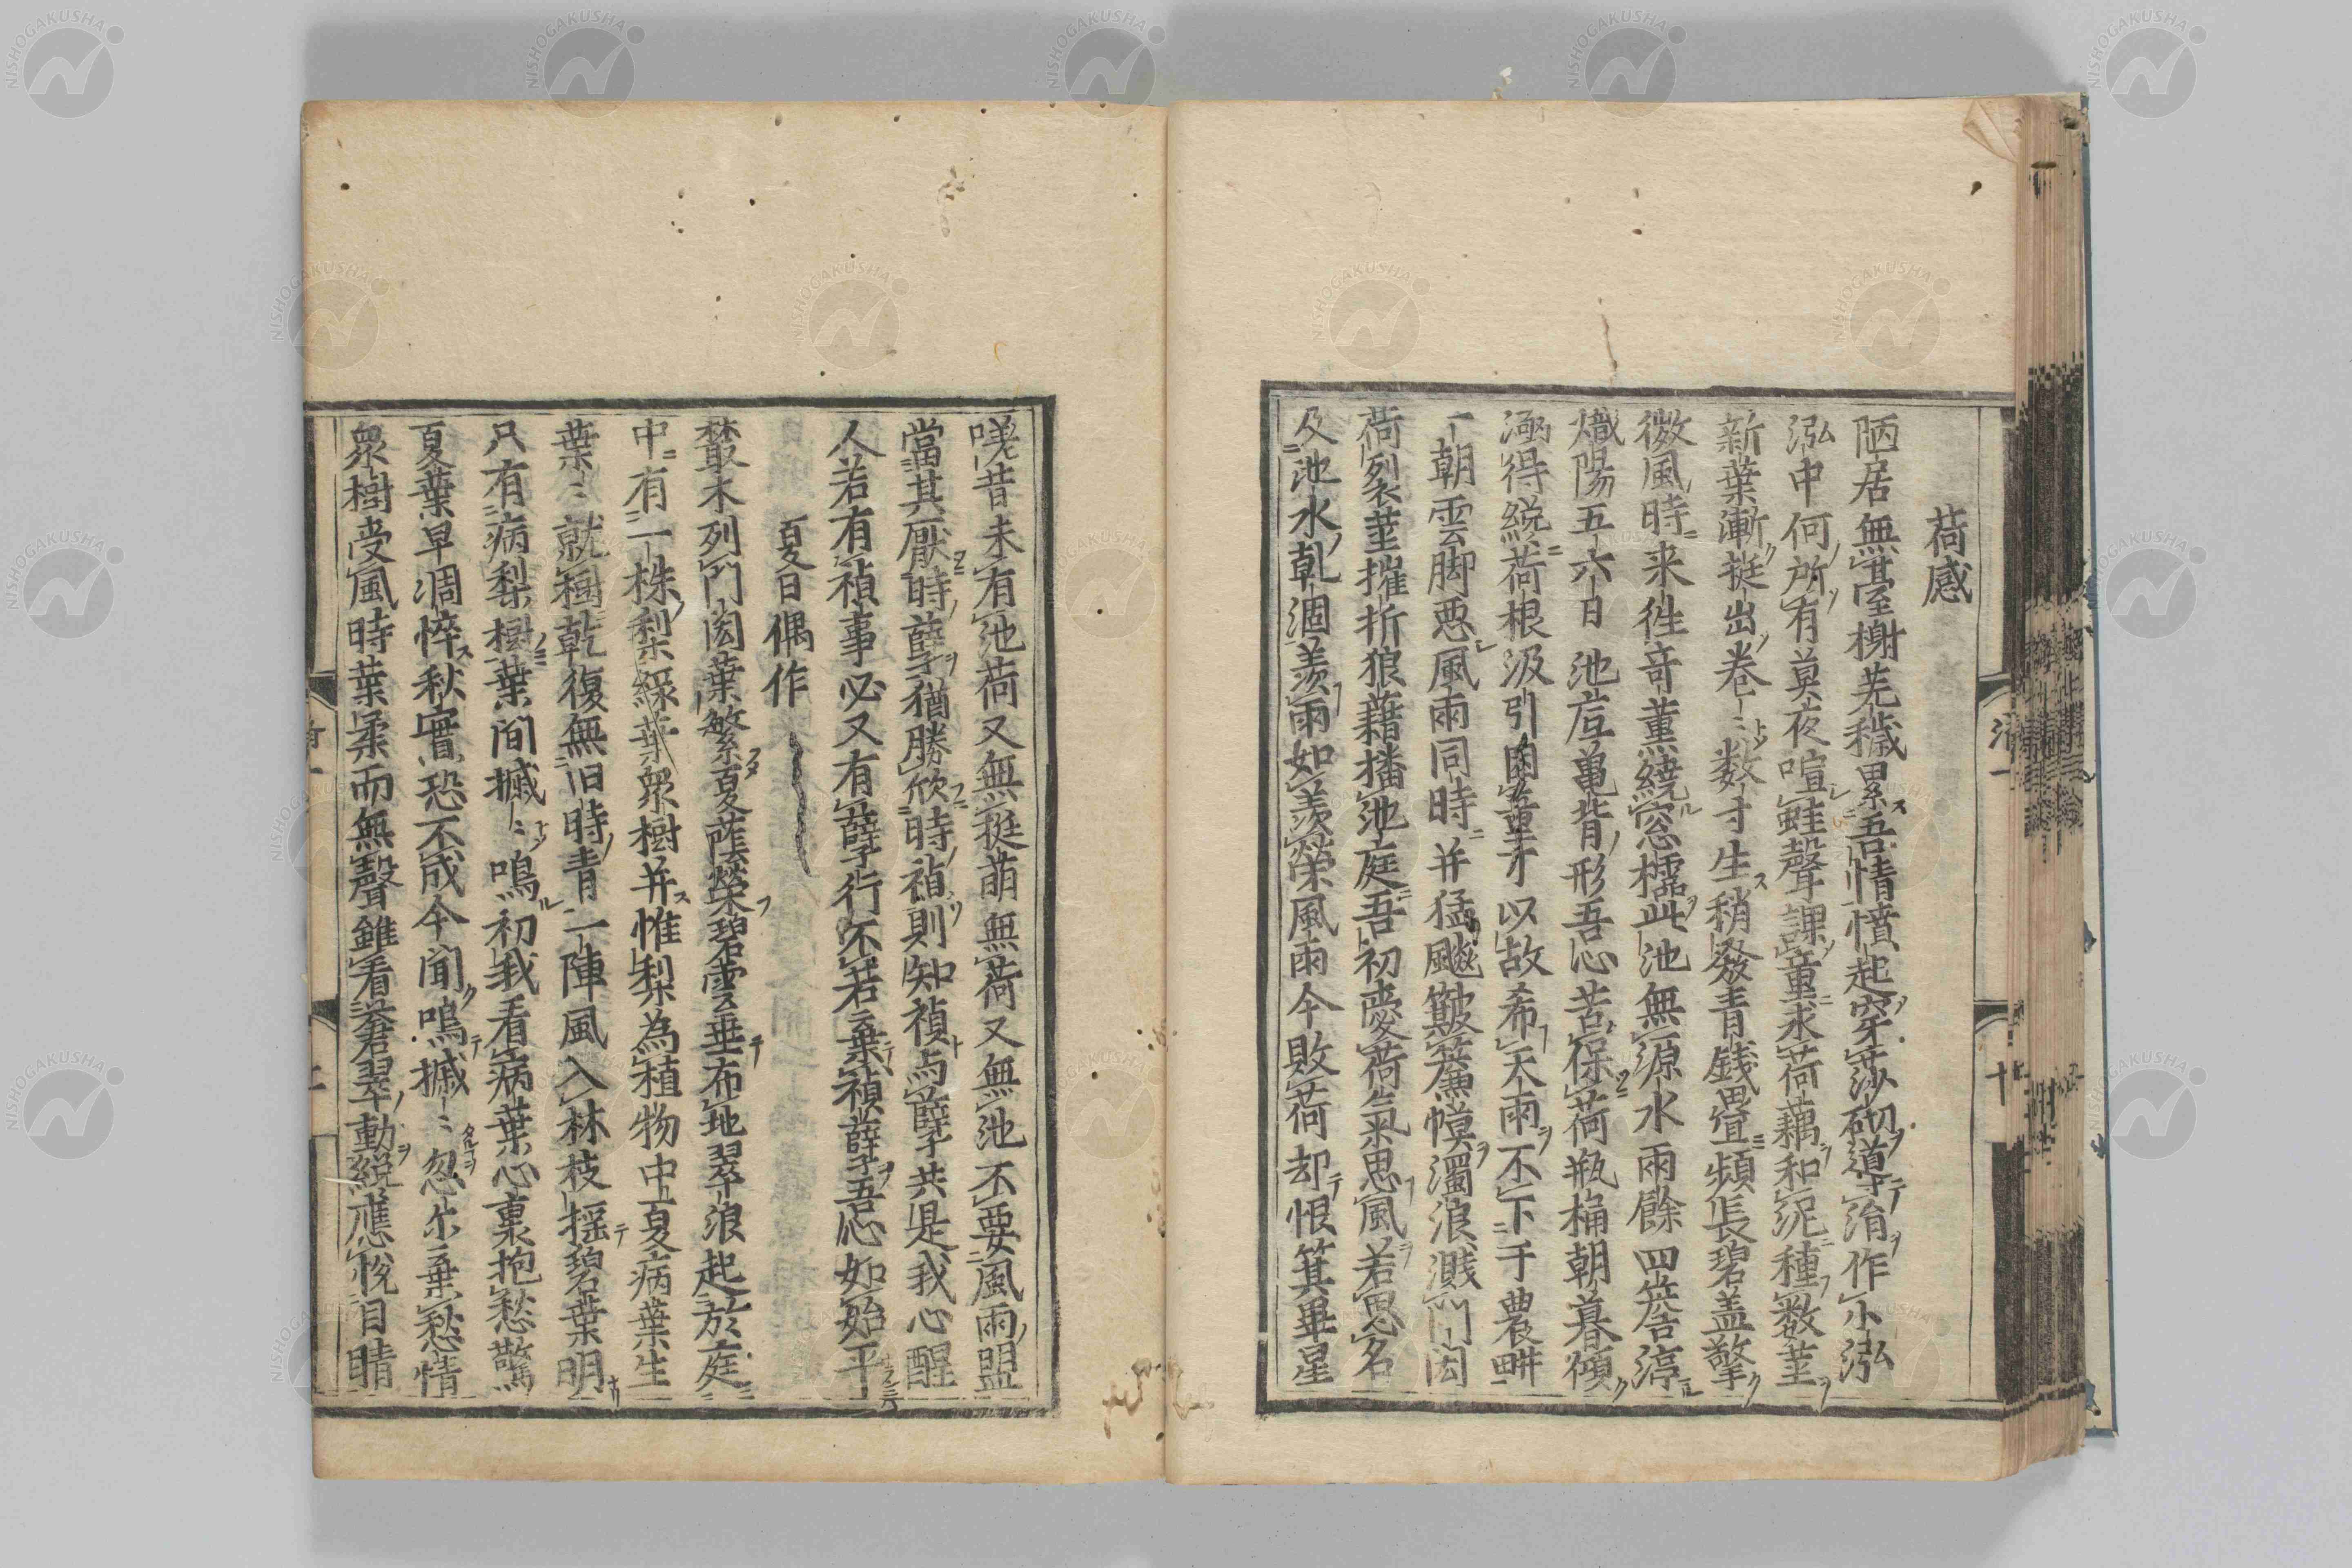 荷感
陋居無臺榭荒穢累吾情憤起穿莎砌導消作小泓
泓中何所有莫夜喧蛙聲課童求荷藕和泥種数茎
新葉漸挺出卷〻数寸生稍発青銭畳頻長碧盖擎
微風時来徃奇薫繞窓櫺此池無源水雨餘四簷渟
熾陽五六日池底亀背形吾心苦保荷瓶桶朝暮傾
漚得絻荷根汲引困童才以故希天雨不下千農畊
一朝雲脚悪風雨同時并猛飈簸簾幙濁浪濺門閎
荷裂茎摧折狼藉播池庭吾初愛荷氣思風若思名
及池水乾涸羨雨如羨榮風雨今敗荷却恨箕畢星
嘆昔未有池荷又無挺萌無荷又無池不要風雨盟
當其厭時孽猶勝欣時禎則知禎与孽共是我心醒
人若有禎事必又有孽行不若棄禎孽吾心如始平
夏日偶作
叢木列門閎葉繁夏蔭榮碧雲垂布地翠浪起於庭
中有一株梨緑葉衆樹并惟梨為植物中夏病葉生
葉〻就稠乾復無旧時青一陣風入林枝揺碧葉明
只有病梨樹葉間摵〻鳴初我看病葉心裏抱愁驚
夏葉早凋悴秋實恐不成今聞鳴摵〻忽尓棄愁情
衆樹受風時葉柔而無聲雖看濃翠動絻應悦目睛